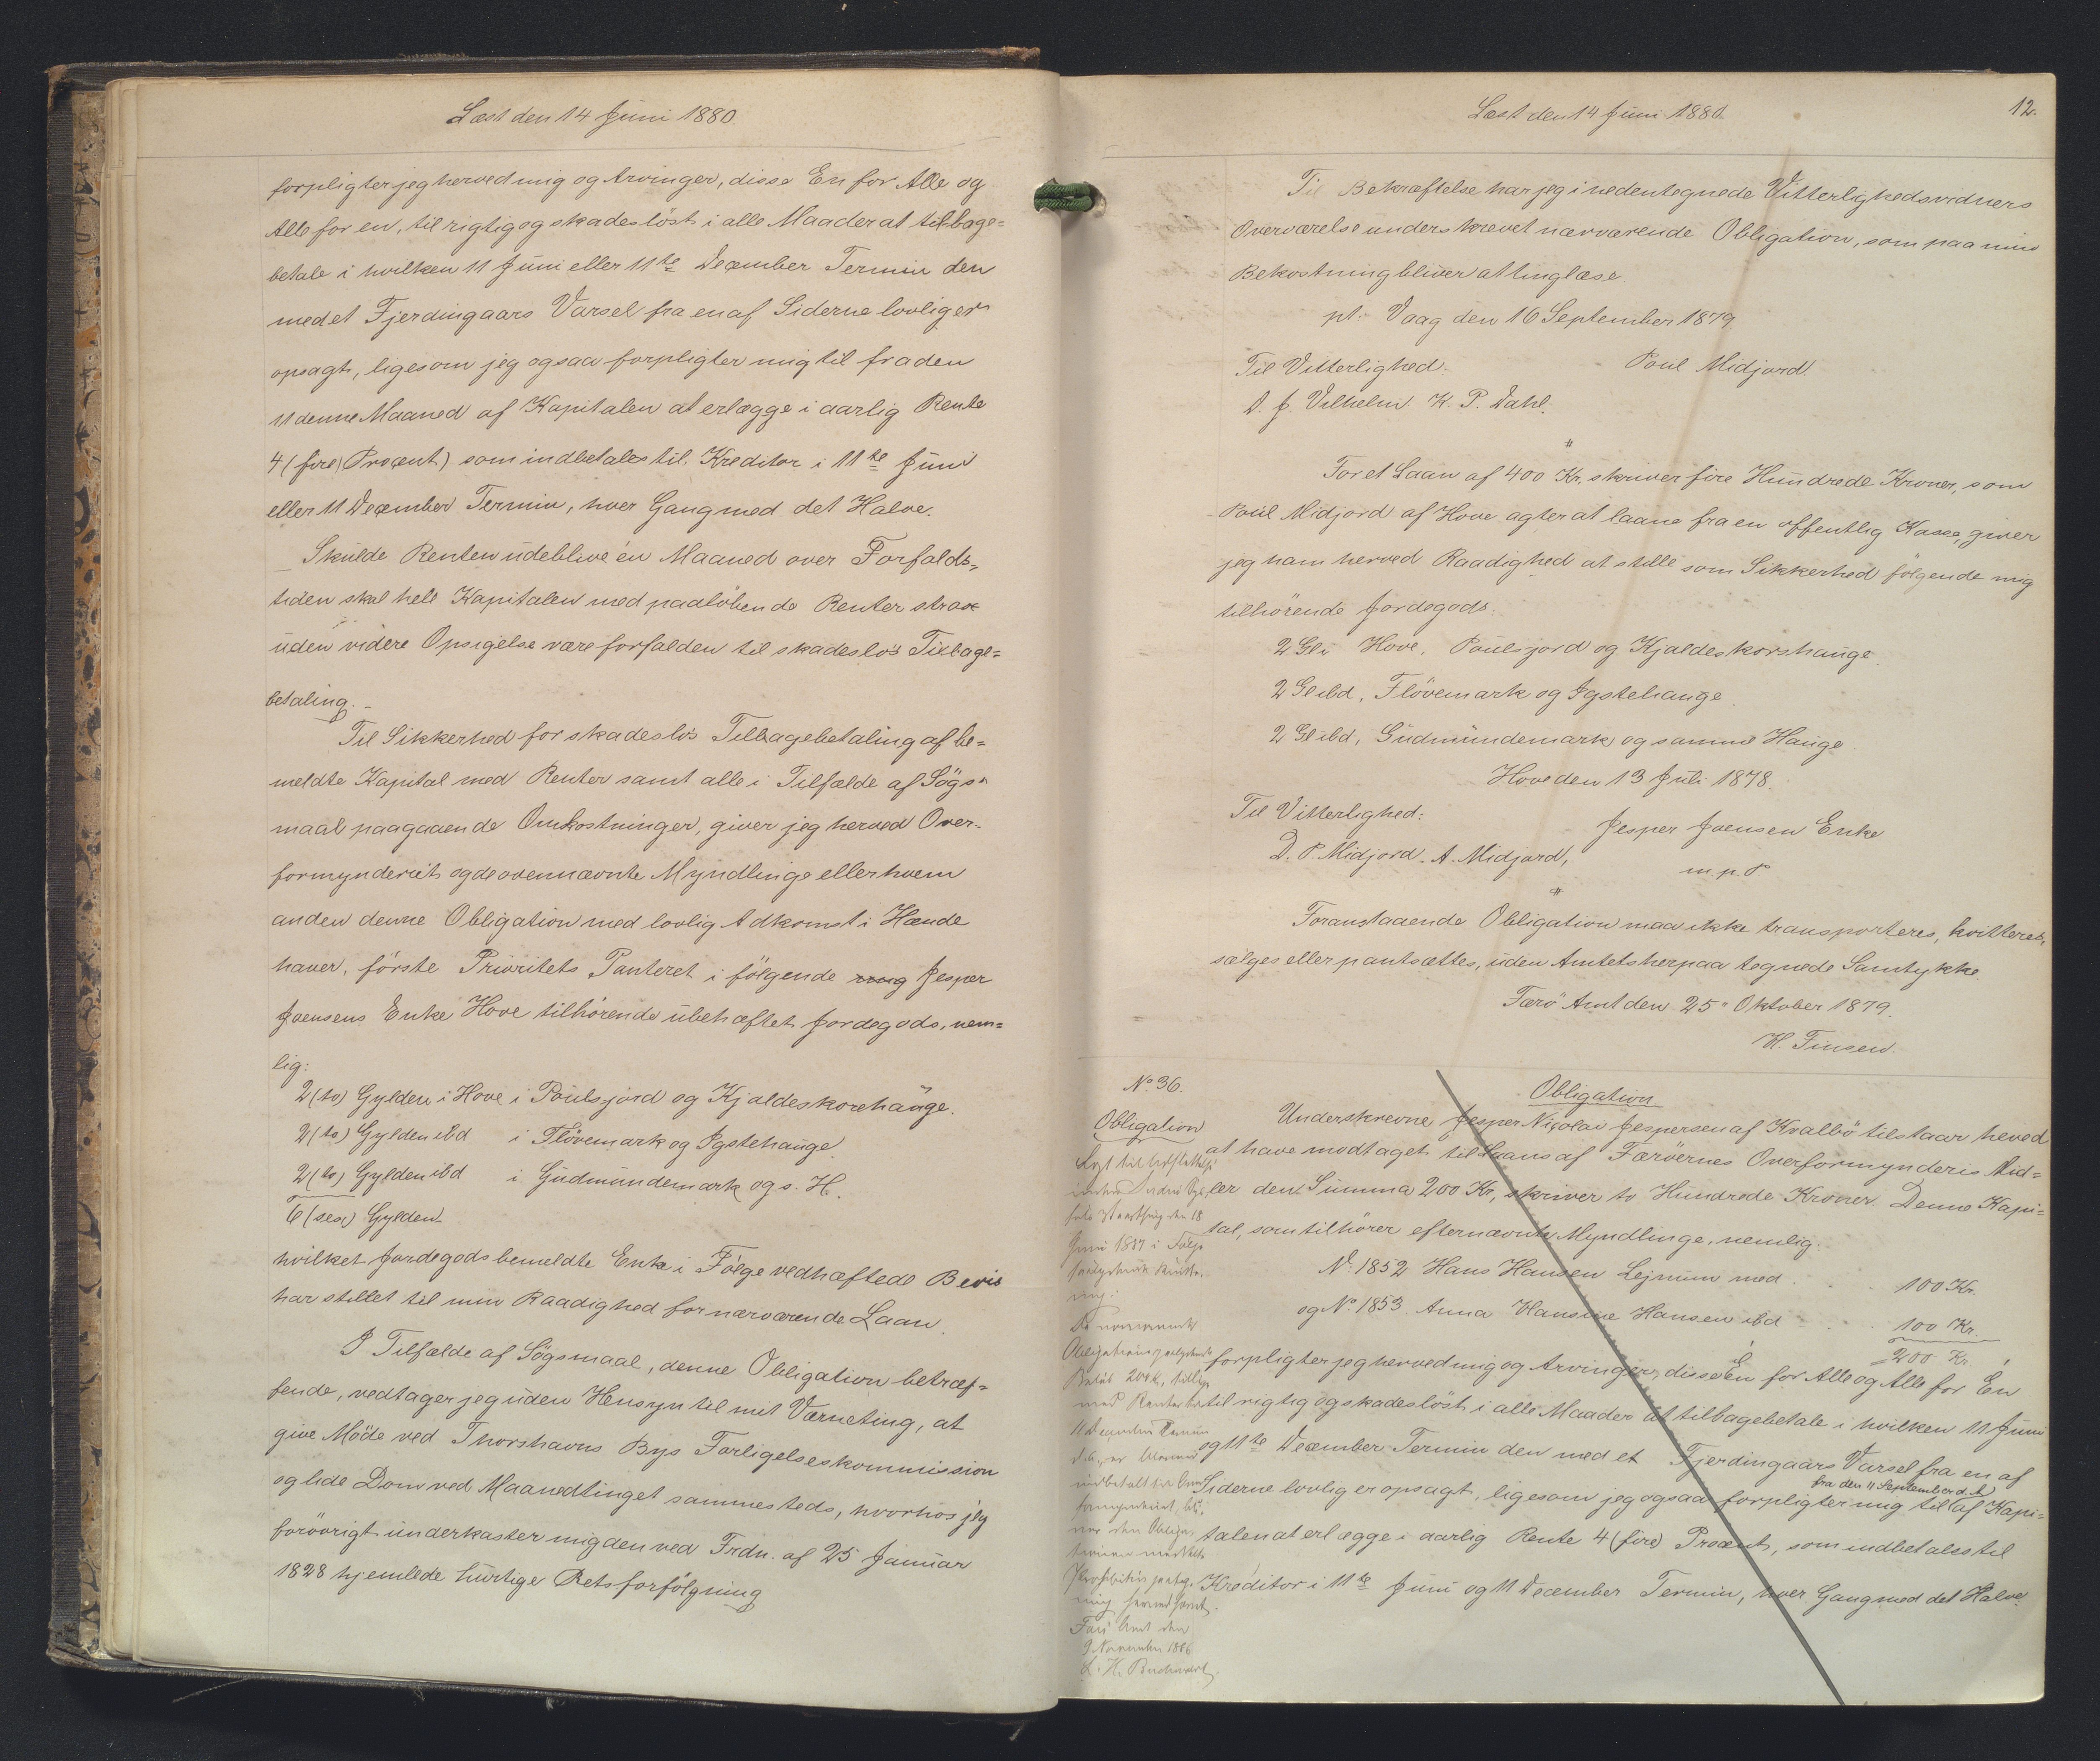 Læst den 14 Juni 1880.
forpligter jeg herved mig og Arvinger, disse En for Alle og
Alle for en, til rigtig og skadesløst i alle Maader at tilbage=
betale i hvilken 11 Juni eller 11te December Termin den
med et Fjerdingaars Varsel fra en af Siderne lovlig er
opsagt, ligesom jeg ogsaa forpligter mig til fra den
11 denne Maaned af Kapitalen at erlægge i aarlig Rente
4 (fire) Procent) som indbetales til Kreditor i 11te Juni
eller 11 December Termin, hver Gang med det Halve.
Skulde Renten udeblive én Maaned over Forfalds=
tiden skal hele Kapitalen med paaløbende Renter strax
uden videre Opsigelse være forfalden til skadesløs Tilbage=
betaling.
Til Sikkerhed for skadesløs Tilbagebetaling af be=
meldte Kapital med Renter samt alle i Tilfælde af Søgs=
maal paagaaende Omkostninger, giver jeg herved Over-
formynderiet og de ovennævnte Myndlinge eller hvem
anden denne Obligation med lovlig Adkomst i Hænde
haver, første Prioritets Panteret i følgende mig Jesper
Joensens Enke Hove tilhørende ubehæftet Jordegods, nem=
lig:
2 (to) Gylden i Hove i Poulsjord og Kjaldeskorshauge.
2 (to) Gylden ibd i Fløvemark og Ygstehauge.
2 (to) Gylden ibd i Gudmundemark og s. H.
6 (sex) Gylden
hvilket Jordegods bemeldte Enke i Følge vedhæftede Bevis
har stillet til min Raadighed for nærværende Laan.
I Tilfælde af Søgsmaal, denne Obligation betræf=
fende, vedtager jeg uden Hensyn til mit Værneting, at
give Møde ved Thorshavns Bys Forligelseskommission
og lide Dom ved Maanedtinget sammesteds, hvorhos jeg
forøvrigt underkaster mig den ved Frdn. af 25 Januar
1828 hjemlede hurtige Retsforfølgning
Læst den 14 Juni 1880.
12.
Til Bekræftelse har jeg i nedentegnede Vitterlighedsvidners
Overværelse underskrevet nærværende Obligation, som paa min
Bekostning bliver at tinglæse.
pt. Vaag den 16 September 1879
Til Vitterlighed. Poul Midjord.
D. J. Vilhelm. K. P. Dahl.
For et Laan af 400 Kr. skriver fire Hundrede Kroner, som
Poul Midjord af Hove agter at laane fra en offentlig Kasse, giver
jeg ham herved Raadighed at stille som Sikkerhed følgende mig
tilhørende Jordegods.
2 Gl i Hove, Poulsjord og Kjaldeskorshauge.
2 Gl ibd, Fløvemark og Ygstehauge.
2 Gl ibd, Gudmundemark og samme Hauge
Hove den 13 Juli 1878.
Til Vitterlighed: Jesper Joensen Enke
D. P. Midjord. A. Midjord, m. p. P
Foranstaaende Obligation maa ikke transporteres, kvitteres,
sælges eller pantsættes, uden Amtets herpaa tegnede Samtykke.
Færø Amt den 25" Oktober 1879.
H. Finsen.
No 36.
Obligation
Obligation
Underskrevne Jesper Nicolai Jespersen af Kvalbø tilstaar heved
at have modtaget til Laans af Færøernes Overformynderis Mid=
ler den Summa 200 Kr, skriver to Hundrede Kroner. Denne Kapi=
tal, som tilhører efternævnte Myndlinge, nemlig:
No 1852 Hans Hansen Lejnum med . . 100 Kr.
og No 1853 Anna Hansine Hansen ibd . . 100 Kr.
= 200 Kr.
forpligter jeg herved mig og Arvinger, disse Én for Alle og Alle for Én
til rigtig og skadesløst i alle Maader at tilbagebetale i hvilken 11 Juni
og 11te December Termin den med et Fjerdingaars Varsel fra en af
Siderne lovlig er opsagt, ligesom jeg ogsaa forpligter mig til fra den 11 September d. A. af Kapi=
talen at erlægge i aarlig Rente 4 (fire) Procent, som indbetales til
Kreditor i 11te Juni og 11 December Termin, hver Gang med det Halve.
Lyst til Udslettelse
Juni 1887 i Følge
Obligations
Beløb 200 K,
med Renter
11 December Termin
Færø Amt den
9 November 1886